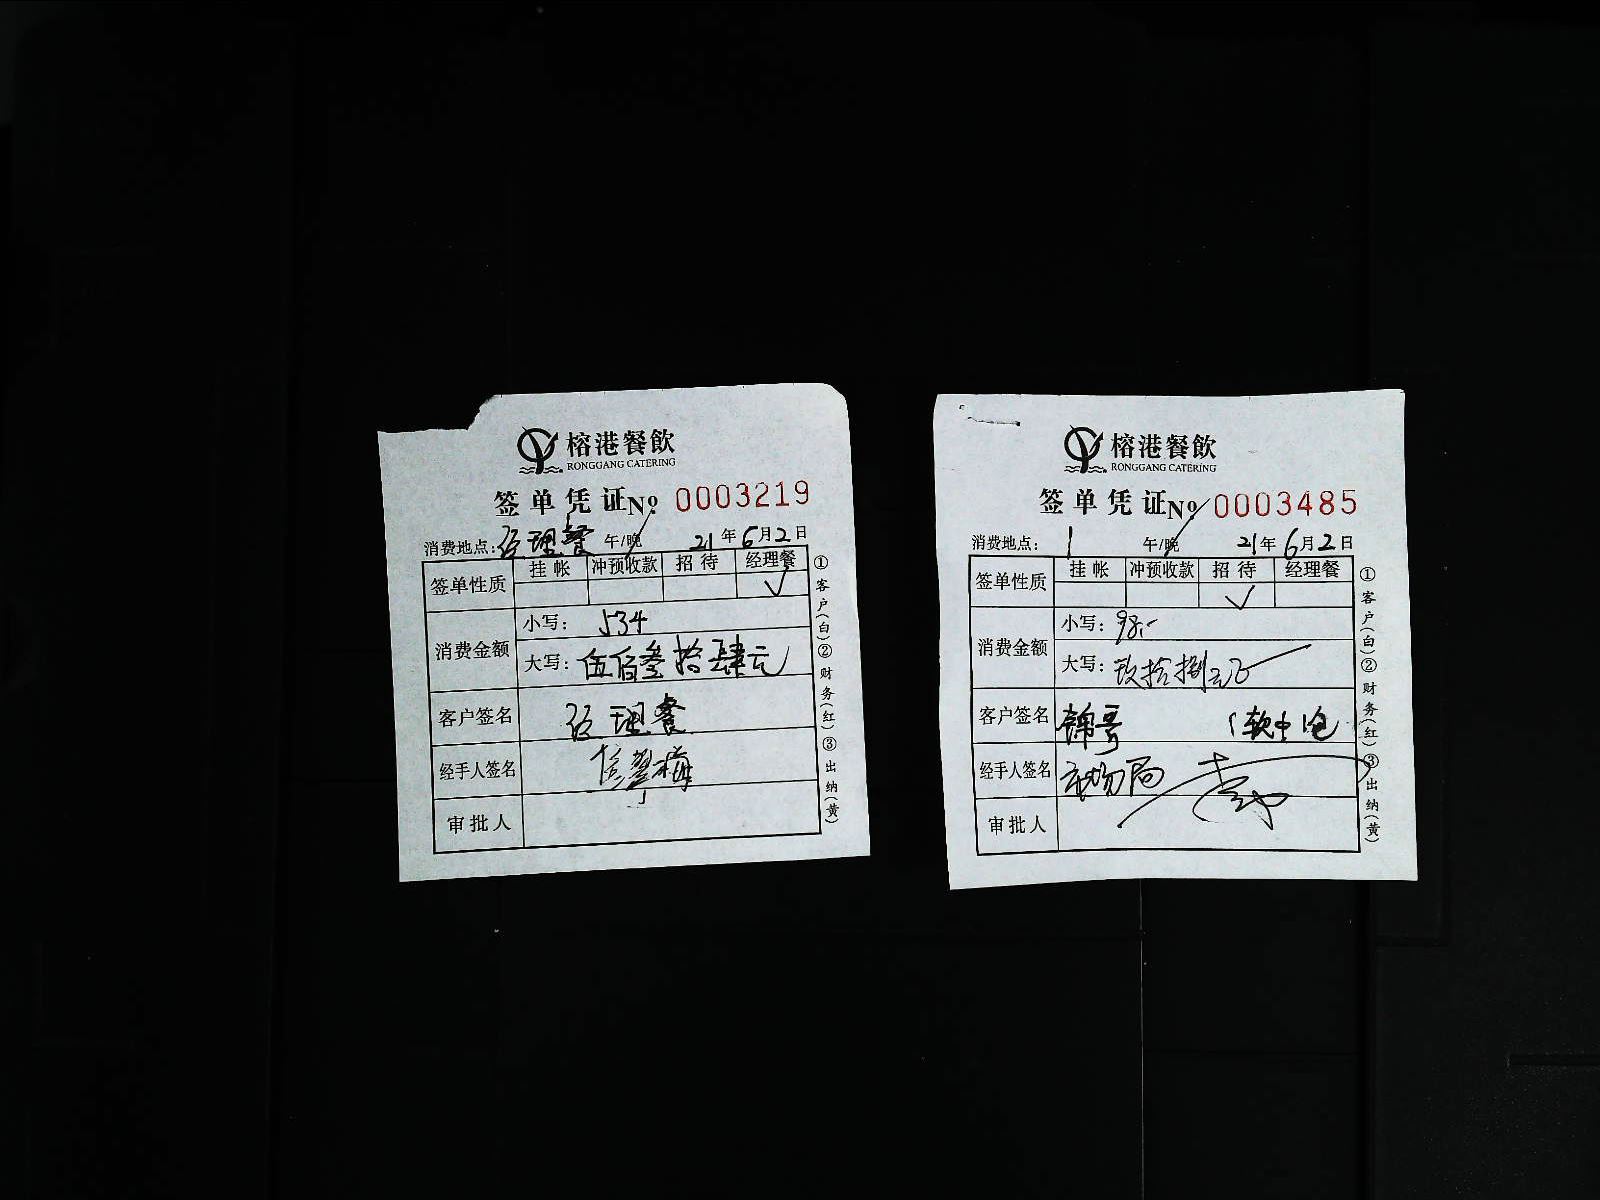 榕港餐飲
RONGGANG CATERING
签单凭证 No 0003219
消费地点：经理餐 午/晚 21年6月2日
签单性质 挂帐 冲预收款 招待 经理餐
✓
消费金额 小写：534
大写：伍佰叁拾肆元
客户签名 经理餐
经手人签名
审批人
①客户(白)②财务(红)③出纳(黄)
榕港餐飲
RONGGANG CATERING
签单凭证 No 0003485
消费地点：1 午/晚 21年6月2日
签单性质 挂帐 冲预收款 招待 经理餐
✓
消费金额 小写：98.-
大写：玖拾捌元
客户签名 锦哥
经手人签名 市场局
审批人
①客户(白)②财务(红)③出纳(黄)